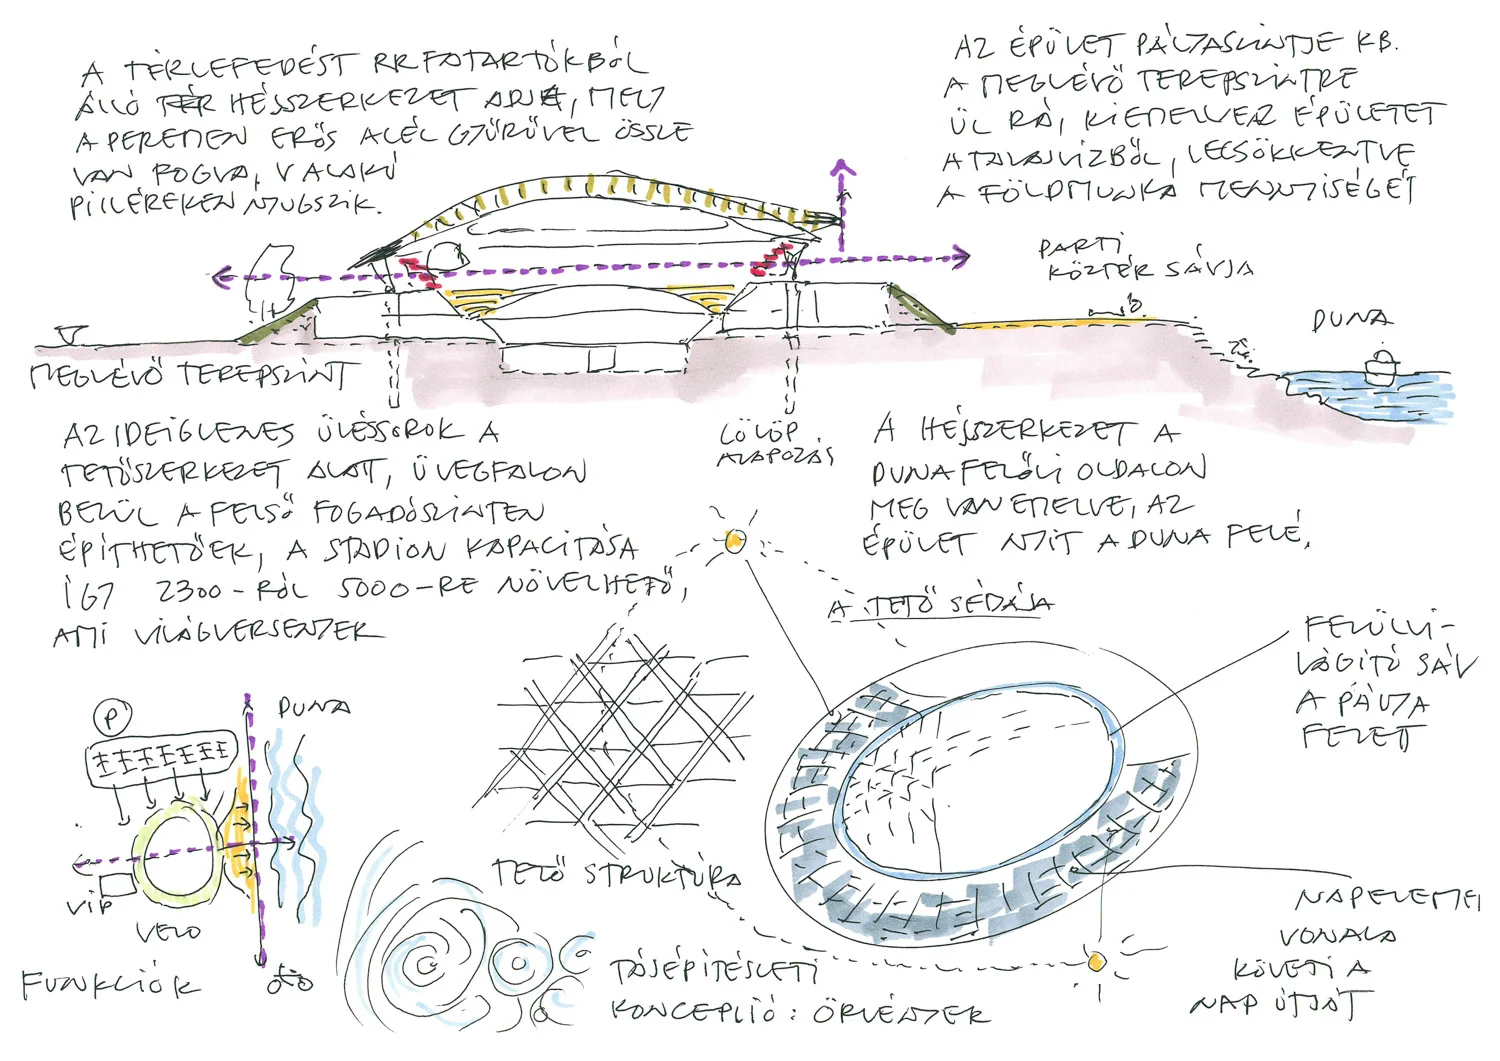 A TÉRLEFEDÉST RRFATARTÓKBÓL
ÁLLÓ TÉR HÉJSZERKEZET ADJA, MELY
A PEREMEN ERŐS ACÉL GYŰRŰVEL ÖSSZE
VAN FOGVA, V ALAKÚ
PILLÉREKEN NYUGSZIK.
AZ ÉPÜLET PÁLYASZINTJE KB.
A MEGLÉVŐ TEREPSZINTRE
ÜL RÁ, KIEMELVE AZ ÉPÜLETET
A TALAJVÍZBŐL, LECSÖKKENTVE
A FÖLDMUNKA MENNYISÉGÉT
PARTI
KÖZTÉR SÁVJA
DUNA
MEGLÉVŐ TEREPSZINT
CÖLÖP
ALAPOZÁS
AZ IDEIGLENES ÜLÉSSOROK A
TETŐSZERKEZET ALATT, ÜVEGFALON
BELÜL A FELSŐ FOGADÓSZINTEN
ÉPÍTHETŐEK, A STADION KAPACITÁSA
ÍGY 2300-RÓL 5000-RE NÖVELHETŐ,
AMI VILÁGVERSENYEK
A HÉJSZERKEZET A
DUNA FELŐLI OLDALON
MEG VAN EMELVE, AZ
ÉPÜLET NYIT A DUNA FELÉ.
A TETŐ SÉDÁJA
FELÜLVI-
LÁGÍTÓ SÁV
A PÁLYA
FELETT
P
DUNA
VIP
VELO
FUNKCIÓK
TETŐ STRUKTÚRA
TÁJÉPÍTÉSZETI
KONCEPCIÓ: ÖRVÉNYEK
NAPELEMEI
VONALA
KÖVETI A
NAP ÚTJÁT